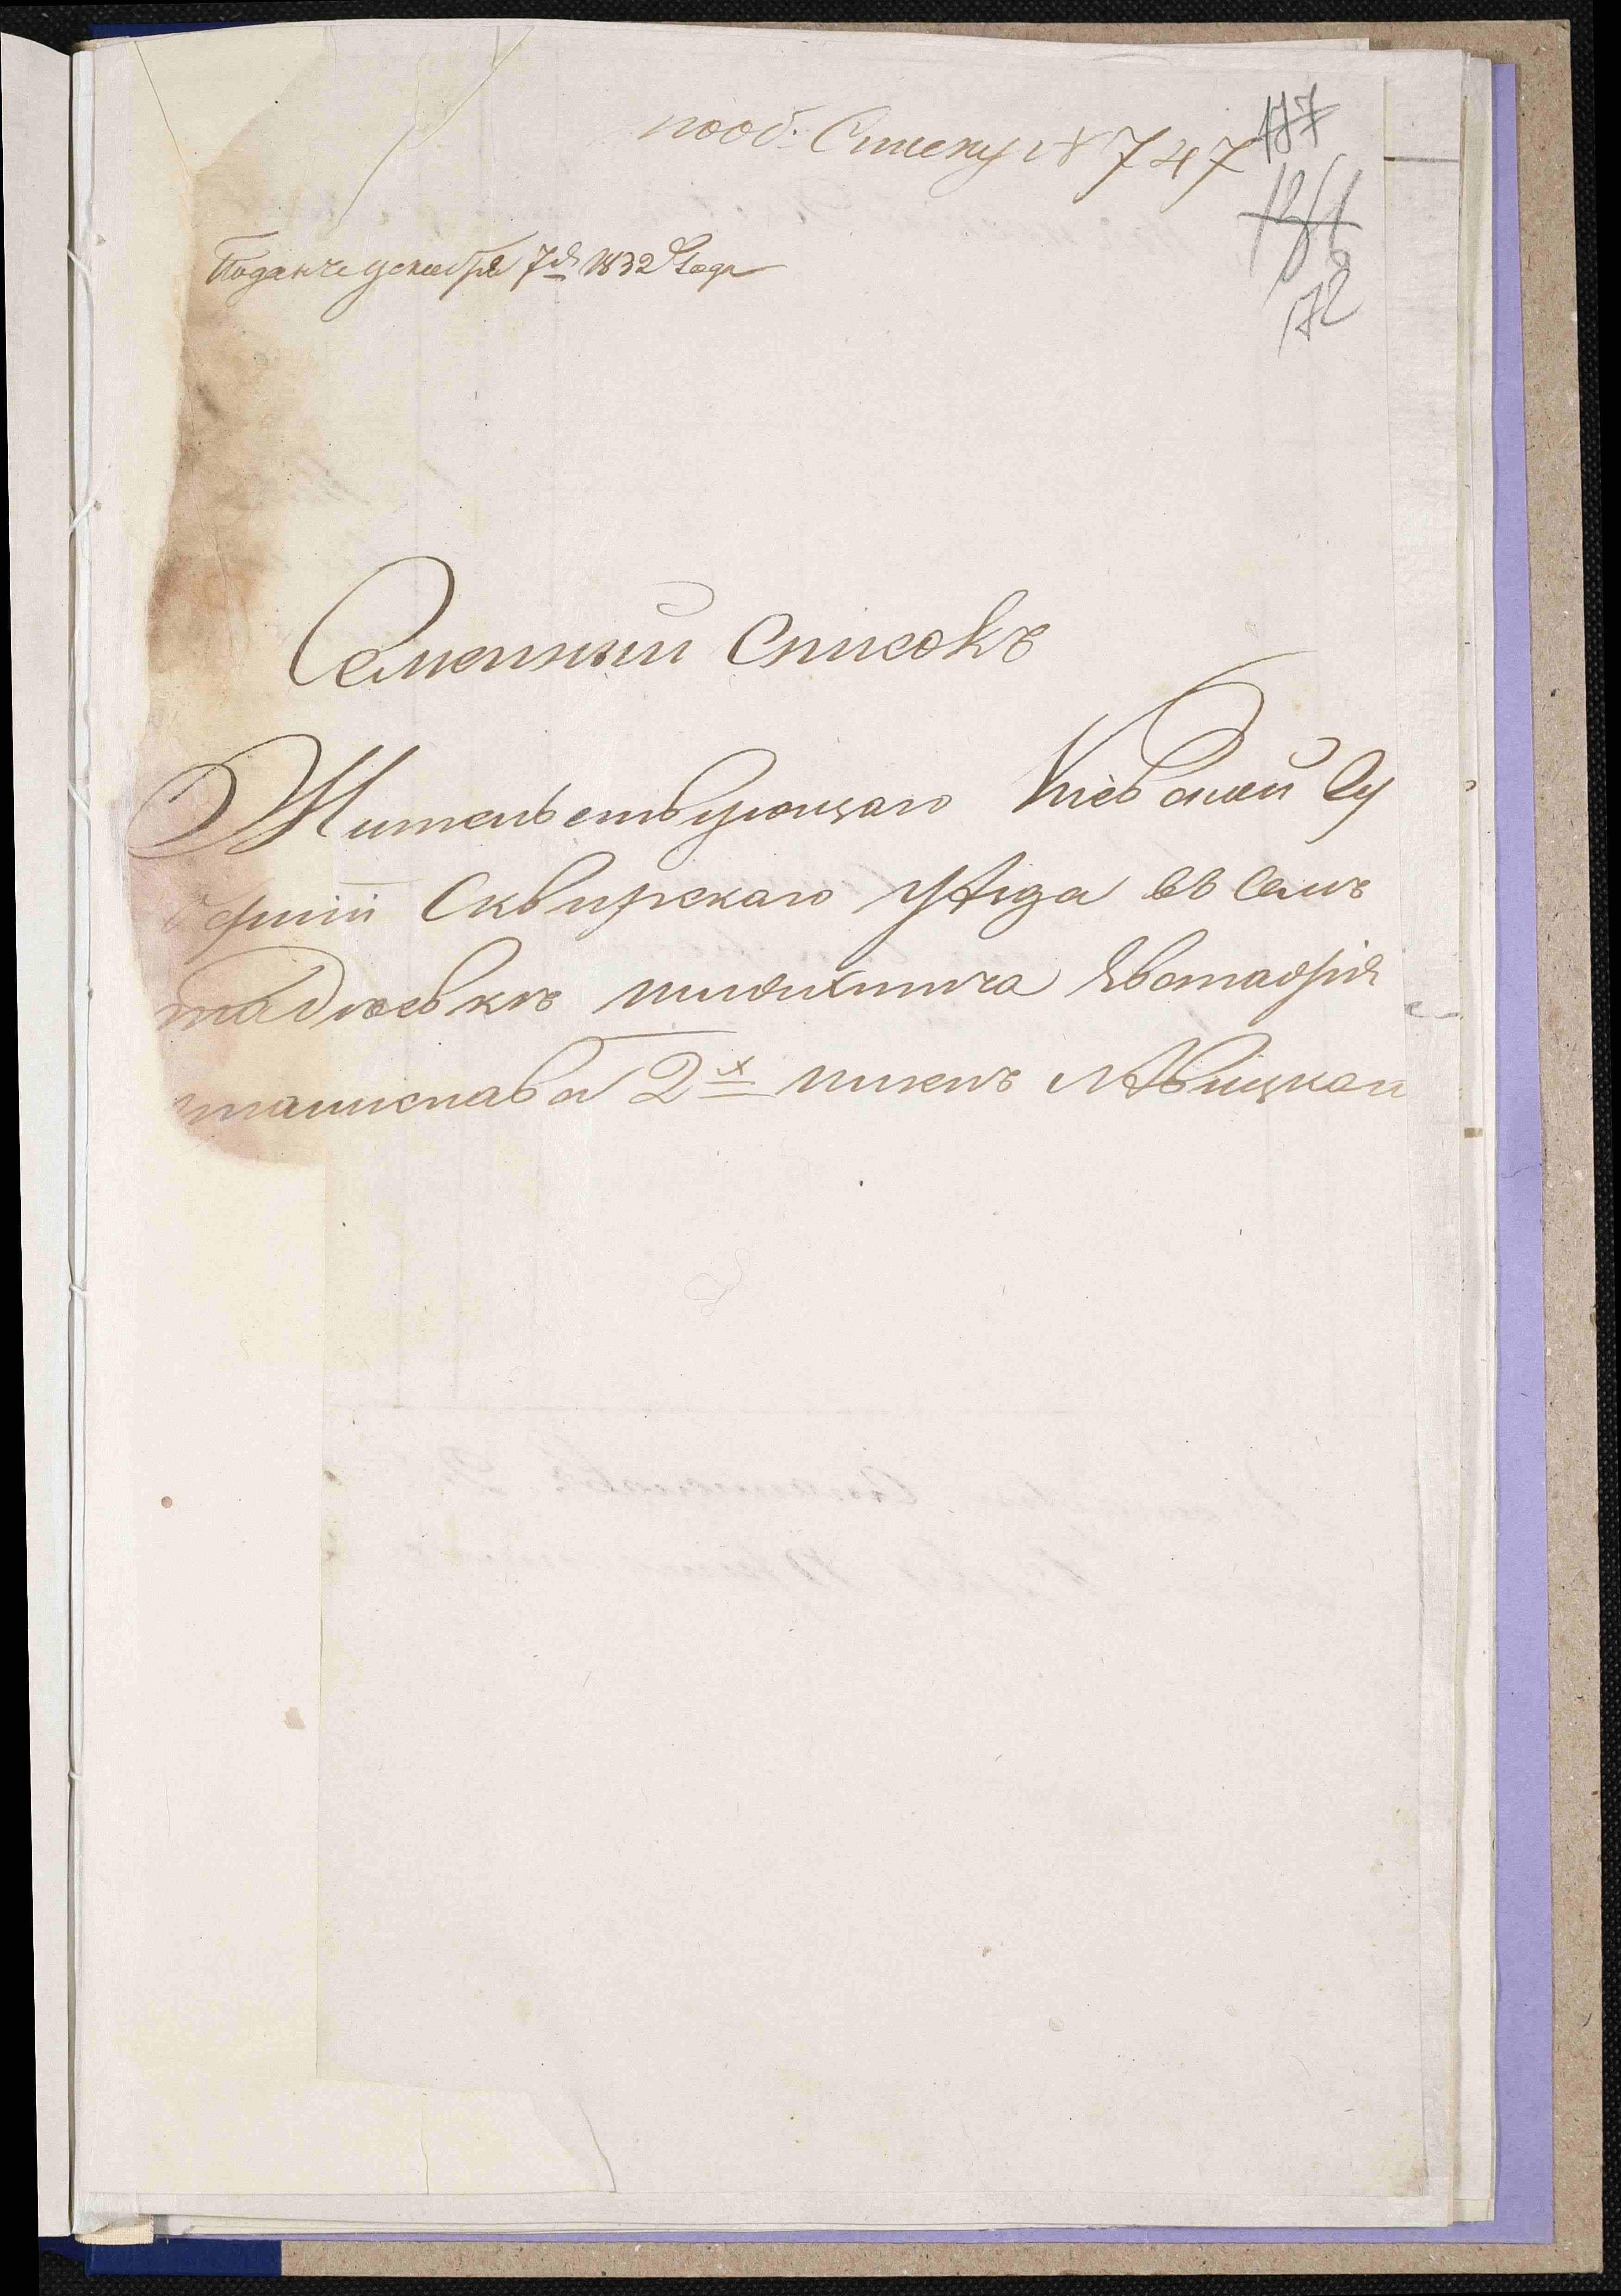 по об. Списку № 747
177
172
Поданъ декабря 7д. 1832 Года
Семейный Списокъ
Жительствующаго Кіевской Гу
берніи Сквирскаго уѣзда въ Селѣ
тадіоевкѣ шляхтича Явстафія
станислава 2х именъ Лѣвицкаго